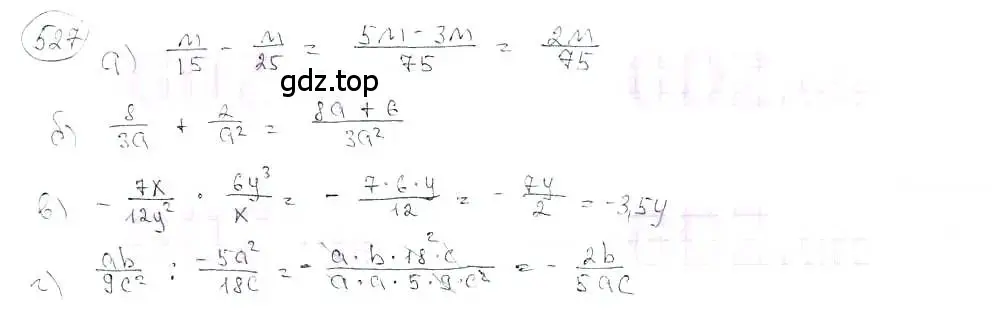 527 а) m/15 - m/25 = (5m - 3m)/75 = 2m/75
gdz.top
б) 8/(3a) + 2/a² = (8a + 6)/(3a²)
в) - 7x/(12y²) · 6y³/x = - (7·6·y)/12 = - 7y/2 = -3,5y
г) ab/(9c²) : (-5a²)/(18c) = - (a·b·18²·c)/(a·a·5·9·c²) = - 2b/(5ac)